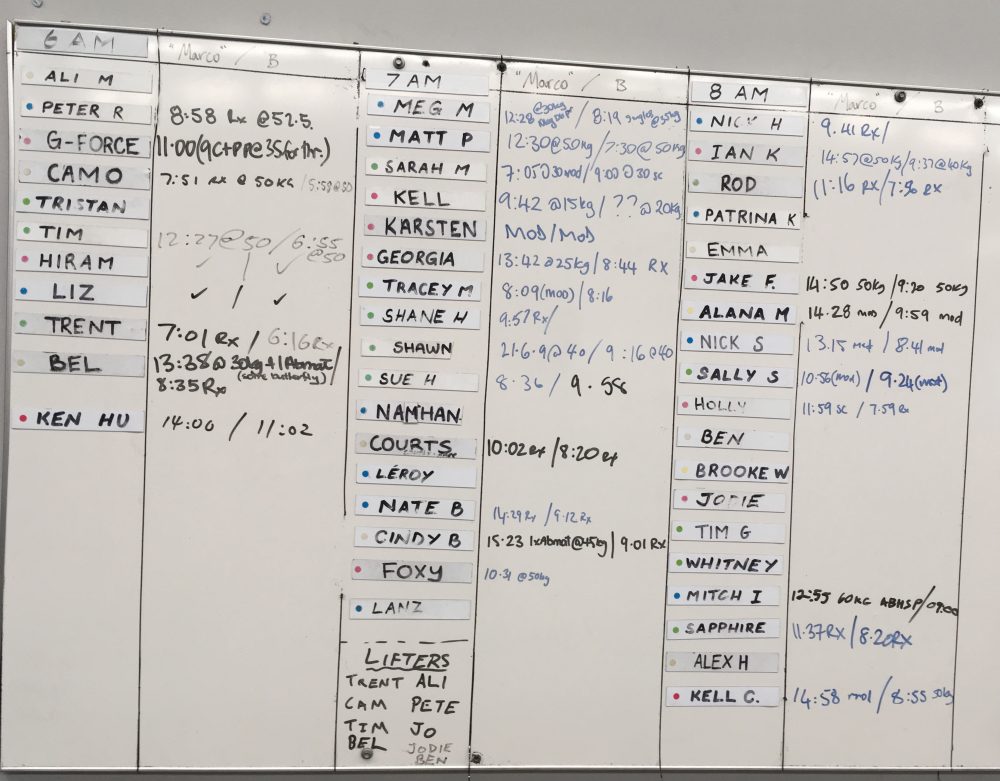 6 AM "Marco" / B
ALI M
PETER R 8:58 Rx @52.5.
G-FORCE 11:00 (9C+PP@35 for thr.)
CAMO 7:51 Rx @ 50KG / 5:58@50
TRISTAN
TIM 12:27@50 / 6:55 @50
HIRAM ✓ / ✓
LIZ ✓ / ✓
TRENT 7:01 Rx / 6:16 Rx
BEL 13:38@30kg +1Abmat /
(some butterfly)
8:35 Rx
KEN HU 14:00 / 11:02
7 AM "Marco" / B
MEG M 12:28 @30kg / 8:19 singles @35kg
MATT P 12:30@50kg / 7:30@50kg
SARAH M 7:05@30mod / 9:00@30 sc
KELL 9:42 @15kg / ?? @20kg
KARSTEN MOD/MOD
GEORGIA 13:42@25kg / 8:44 RX
TRACEY M 8:09(mod) / 8:16
SHANE H 9:57Rx/
SHAWN 21.6.9@40 / 9:16@40
SUE H 8.36 / 9.58
NAMHAN
COURTS 10:02 Rx / 8:20 Rx
LEROY
NATE B 14:29 Rx / 9:12 Rx
CINDY B 15.23 1xAbmat@45kg / 9.01 Rx
FOXY 10.31 @50kg
LANZ
LIFTERS
TRENT ALI
CAM PETE
TIM JO
BEL JODIE
BEN
8 AM "Marco" B
NICK H 9.41 Rx/
IAN K 14:57@50kg/9:37@40kg
ROD 11:16 RX/7:50 RX
PATRINA K
EMMA
JAKE F. 14:50 50kg / 9:20 50kg
ALANA M 14.28 mod / 9:59 mod
NICK S 13.15 mod / 8.41 mod
SALLY S 10:56(mod) / 9.24(mod)
HOLLY 11:59 sc / 7:59 Rx
BEN
BROOKE W
JODIE
TIM G
WHITNEY
MITCH I 12:55 60KG ABHSP/09:00
SAPPHIRE 11.37RX / 8.20RX
ALEX H
KELL C. 14:58 mod / 8:55 30kg